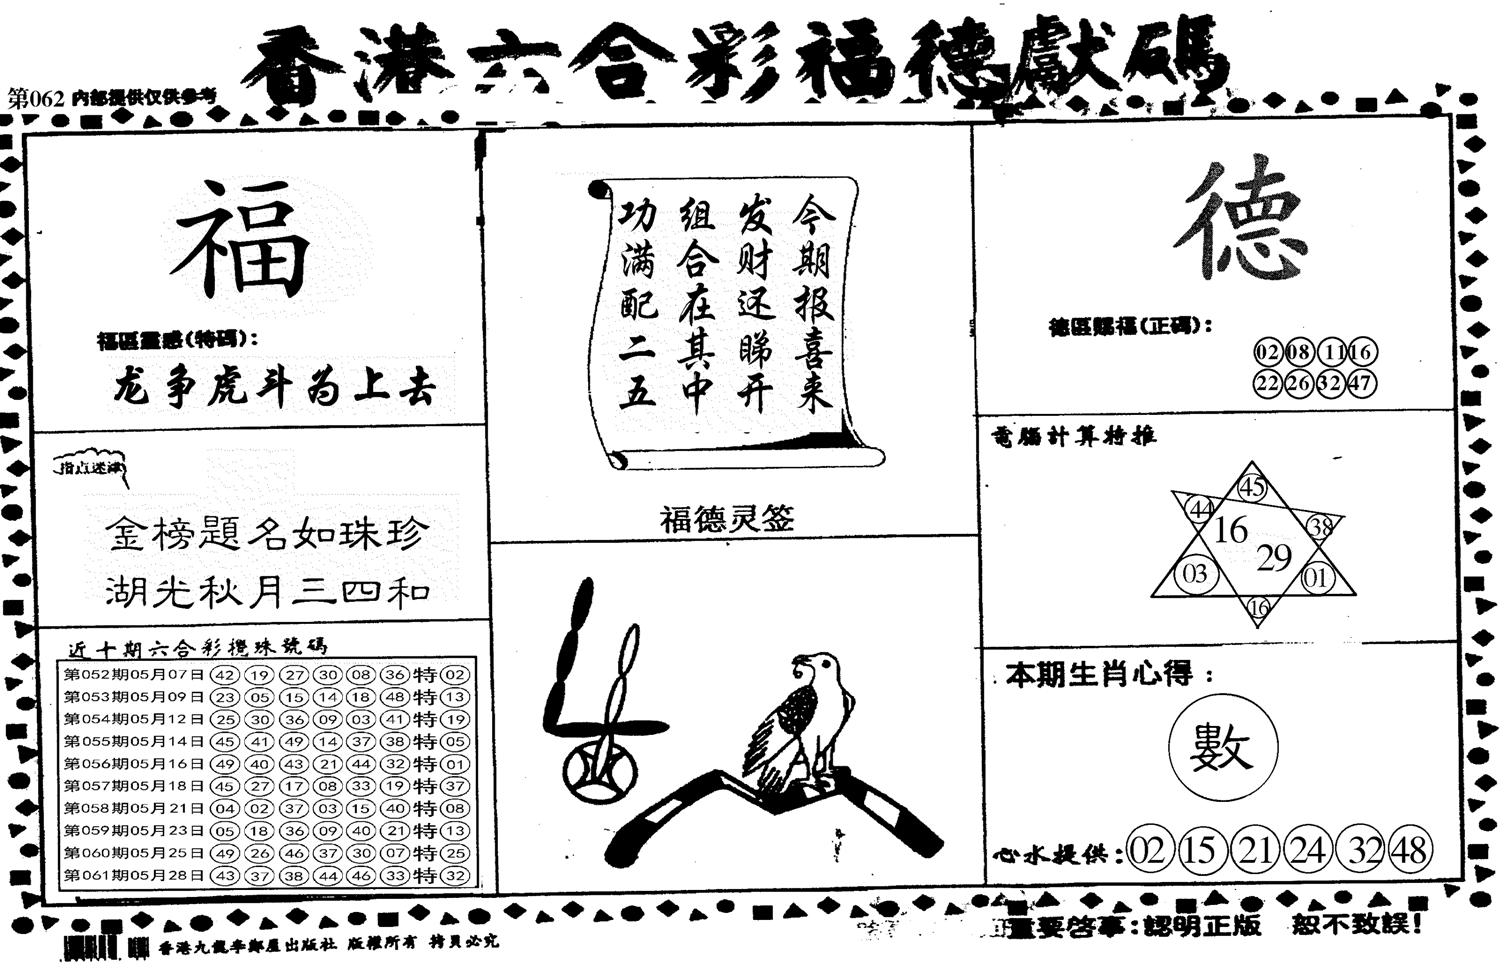 香港六合彩福德獻碼
第062 内部提供仅供参考
福
福區靈感(特碼):
龙争虎斗为上去
指点迷津
金榜題名如珠珍
湖光秋月三四和
近十期六合彩攪珠號碼
第052期05月07日 42 19 27 30 08 36 特 02
第053期05月09日 23 05 15 14 18 48 特 13
第054期05月12日 25 30 36 09 03 41 特 19
第055期05月14日 45 41 49 14 37 38 特 05
第056期05月16日 49 40 43 21 44 32 特 01
第057期05月18日 45 27 17 08 33 19 特 37
第058期05月21日 04 02 37 03 15 40 特 08
第059期05月23日 05 18 36 09 40 21 特 13
第060期05月25日 49 26 46 37 30 07 特 25
第061期05月28日 43 37 38 44 46 33 特 32
今期报喜来
发财还睇开
组合在其中
功满配二五
福德灵签
德
德區賜福(正碼):
02 08 11 16
22 26 32 47
電腦計算特推
45
44
38
16
29
03
01
16
本期生肖心得:
數
心水提供: 02 15 21 24 32 48
香港九龍李鄭屋出版社 版權所有 拷貝必究
重要啓事:認明正版 恕不致誤!